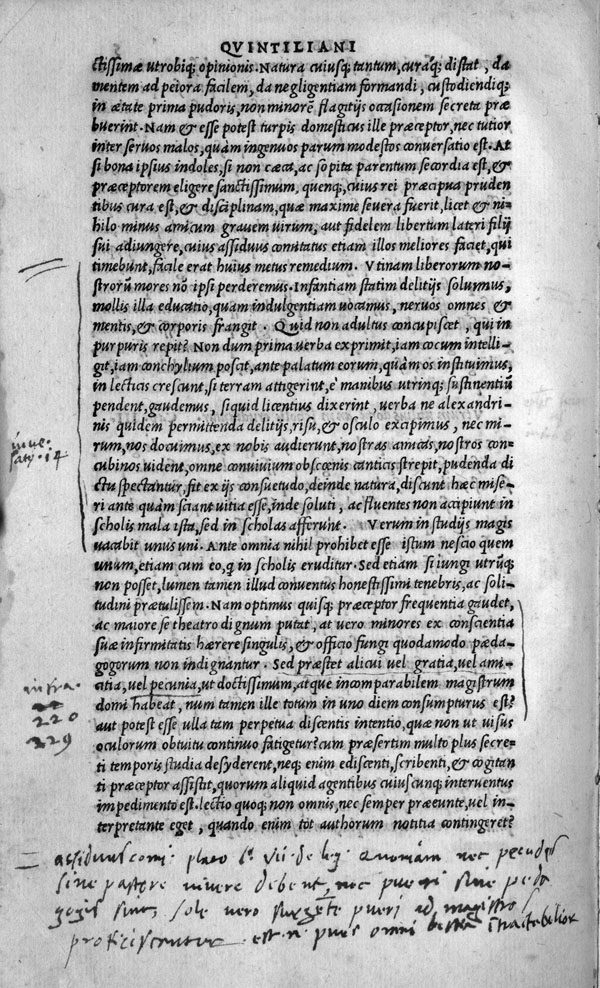 QVINTILIANI
ctissimæ utrobiq; opinionis. Natura cuiusq; tantum, curaq́; distat, da
mentem ad peiora facilem, da negligentiam formandi, custodiendiq;
in ætate prima pudoris, non minorē flagitijs occasionem secreta præ
buerint. Nam & esse potest turpis domesticus ille præceptor, nec tutior
inter seruos malos, quàm ingenuos parum modestos conuersatio est. At
si bona ipsius indoles, si non cæca, ac sopita parentum secordia est, &
præceptorem eligere sanctissimum, quenq;, cuius rei præcipua pruden
tibus cura est, & disciplinam, quæ maxime seuera fuerit, licet & ni-
hilo minus amicum grauem uirum, aut fidelem libertum lateri filij
sui adiungere, cuius assiduus comitatus etiam illos meliores faciet, qui
timebunt, facile erat huius metus remedium. Vtinam liberorum no-
strorū mores nō ipsi perderemus. Infantiam statim delitijs soluimus,
mollis illa educatio, quam indulgentiam uocamus, neruos omnes &
mentis, & corporis frangit. Quid non adultus concupiscet, qui in
purpuris repit? Non dum prima uerba exprimit, iam cocum intelli-
git, iam conchylium poscit, ante palatum eorum, quàm os instituimus,
in lecticis crescunt, si terram attigerint, è manibus utrinq; sustinentiū
pendent, gaudemus, siquid licentius dixerint, uerba ne alexandri-
nis quidem permittenda delitijs, risu, & osculo excipimus, nec mi-
rum, nos docuimus, ex nobis audierunt, nostras amicas, nostros con-
cubinos uident, omne conuiuium obscœnis canticis strepit, pudenda di
ctu spectantur, fit ex ijs consuetudo, deinde natura, discunt hæc mise-
ri ante quàm sciant uitia esse, inde soluti, ac fluentes non accipiunt in
scholis mala ista, sed in scholas afferunt. Verum in studijs magis
uacabit unus uni. Ante omnia nihil prohibet esse istum nescio quem
unum, etiam cum eo, q̃ in scholis eruditur. Sed etiam si iungi utrūq;
non posset, lumen tamen illud conuentus honestissimi tenebris, ac soli-
tudini prætulissem. Nam optimus quisq; præceptor frequentia gaudet,
ac maiore se theatro dignum putat, at uero minores ex conscientia
suæ infirmitatis hærere singulis, & officio fungi quodammodo pæda-
gogorum non indignantur. Sed præstet alicui uel gratia, uel ami-
citia, uel pecunia, ut doctissimum, atque incomparabilem magistrum
domi habeat, num tamen ille totum in uno diem consumpturus est?
aut potest esse ulla tam perpetua discentis intentio, quæ non ut uisus
oculorum obtuitu continuo fatigetur? cum præsertim multo plus secre-
ti temporis studia desyderent, neq; enim ediscenti, scribenti, & cogitan
ti præceptor assistit, quorum aliquid agentibus cuiuscunq; interuentus
impedimento est. lectio quoq; non omnis, nec semper præeunte, uel in-
terpretante eget, quando enim tot authorum notitia contingeret?
iuue.
saty. 14
infra.
220
229
assiduus comi. plato l. vii. de leg. Quoniam nec pecudes
sine pastore vivere debent, nec pueri sine peda
gogis sint, sole vero surgente pueri ad magistros
proficiscantur. est .n. puer omni bestia intractabilior